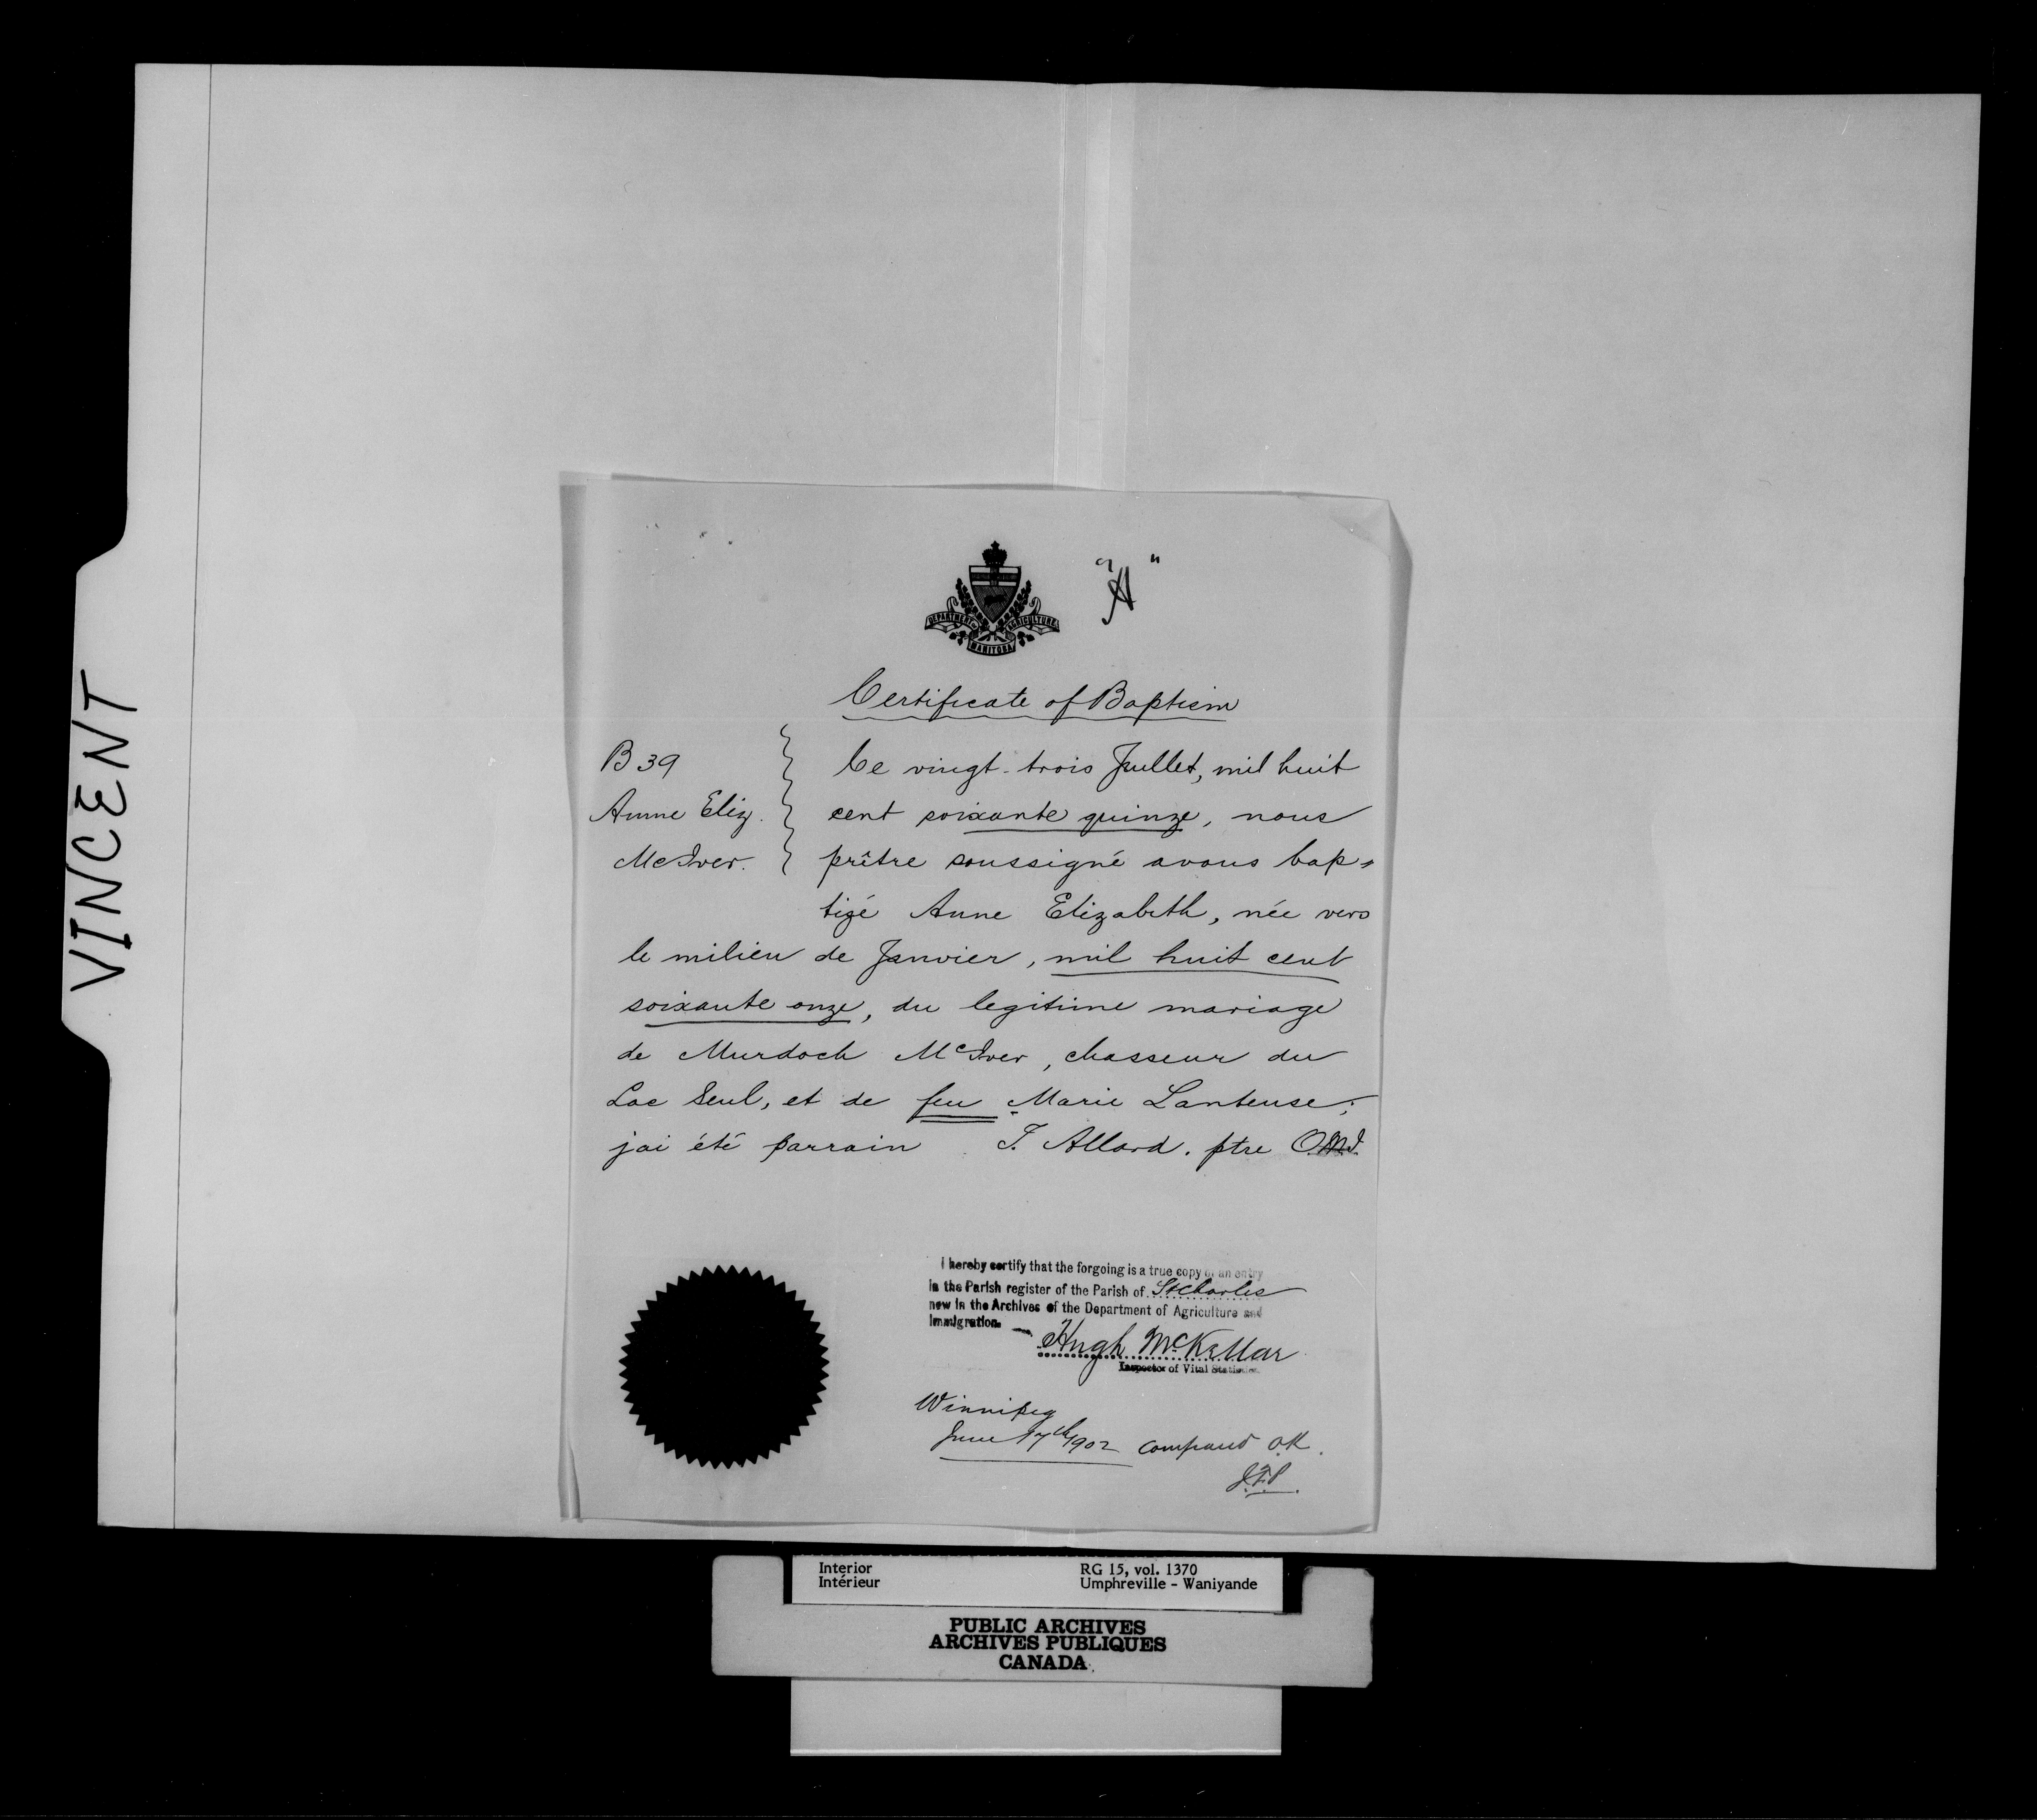 VINCENT
"A"
DEPARTMENT OF AGRICULTURE
MANITOBA
Certificate of Baptism
B 39
Anne Eliz.
McIver.
Ce vingt-trois Juillet, mil huit
cent soixante quinze, nous
prêtre soussigné avons bap-
tizé Anne Elizabeth, née vers
le milieu de Janvier, mil huit cent
soixante onze, du legitime mariage
de Murdoch McIver, chasseur du
Lac Seul, et de feu Marie Lanteuse;
jai été parrain J. Allard. ptre O.M.I.
I hereby certify that the forgoing is a true copy of an entry
in the Parish register of the Parish of St Charles
now in the Archives of the Department of Agriculture and
Immigration.
Hugh McKellar
Inspector of Vital Statistics.
Winnipeg
June 17th 1902 Compared O.K.
J.F.P.
Interior
Intérieur
RG 15, vol. 1370
Umphreville - Waniyande
PUBLIC ARCHIVES
ARCHIVES PUBLIQUES
CANADA